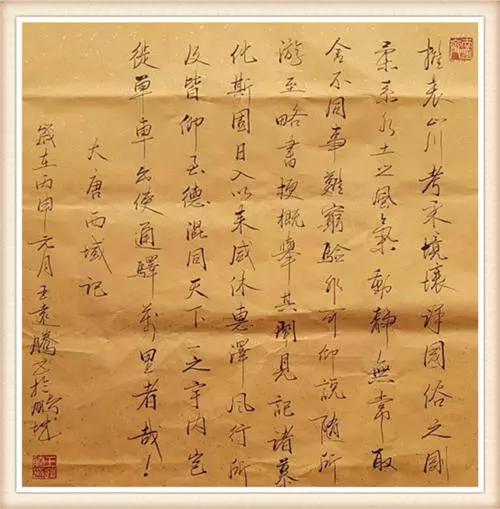 推表山川考采境壤詳國俗之剛
柔系水土之風氣動靜無常取
舍不同事難窮驗非可仰說随所
游至略書梗概舉其聞見記諸慕
化斯固日入以来咸沐惠澤風行所
及皆仰至德混同天下一之宇内豈
徒單車出使通驛萬里者哉！
大唐西域記
歲在丙申元月王袁騰書於鵬城